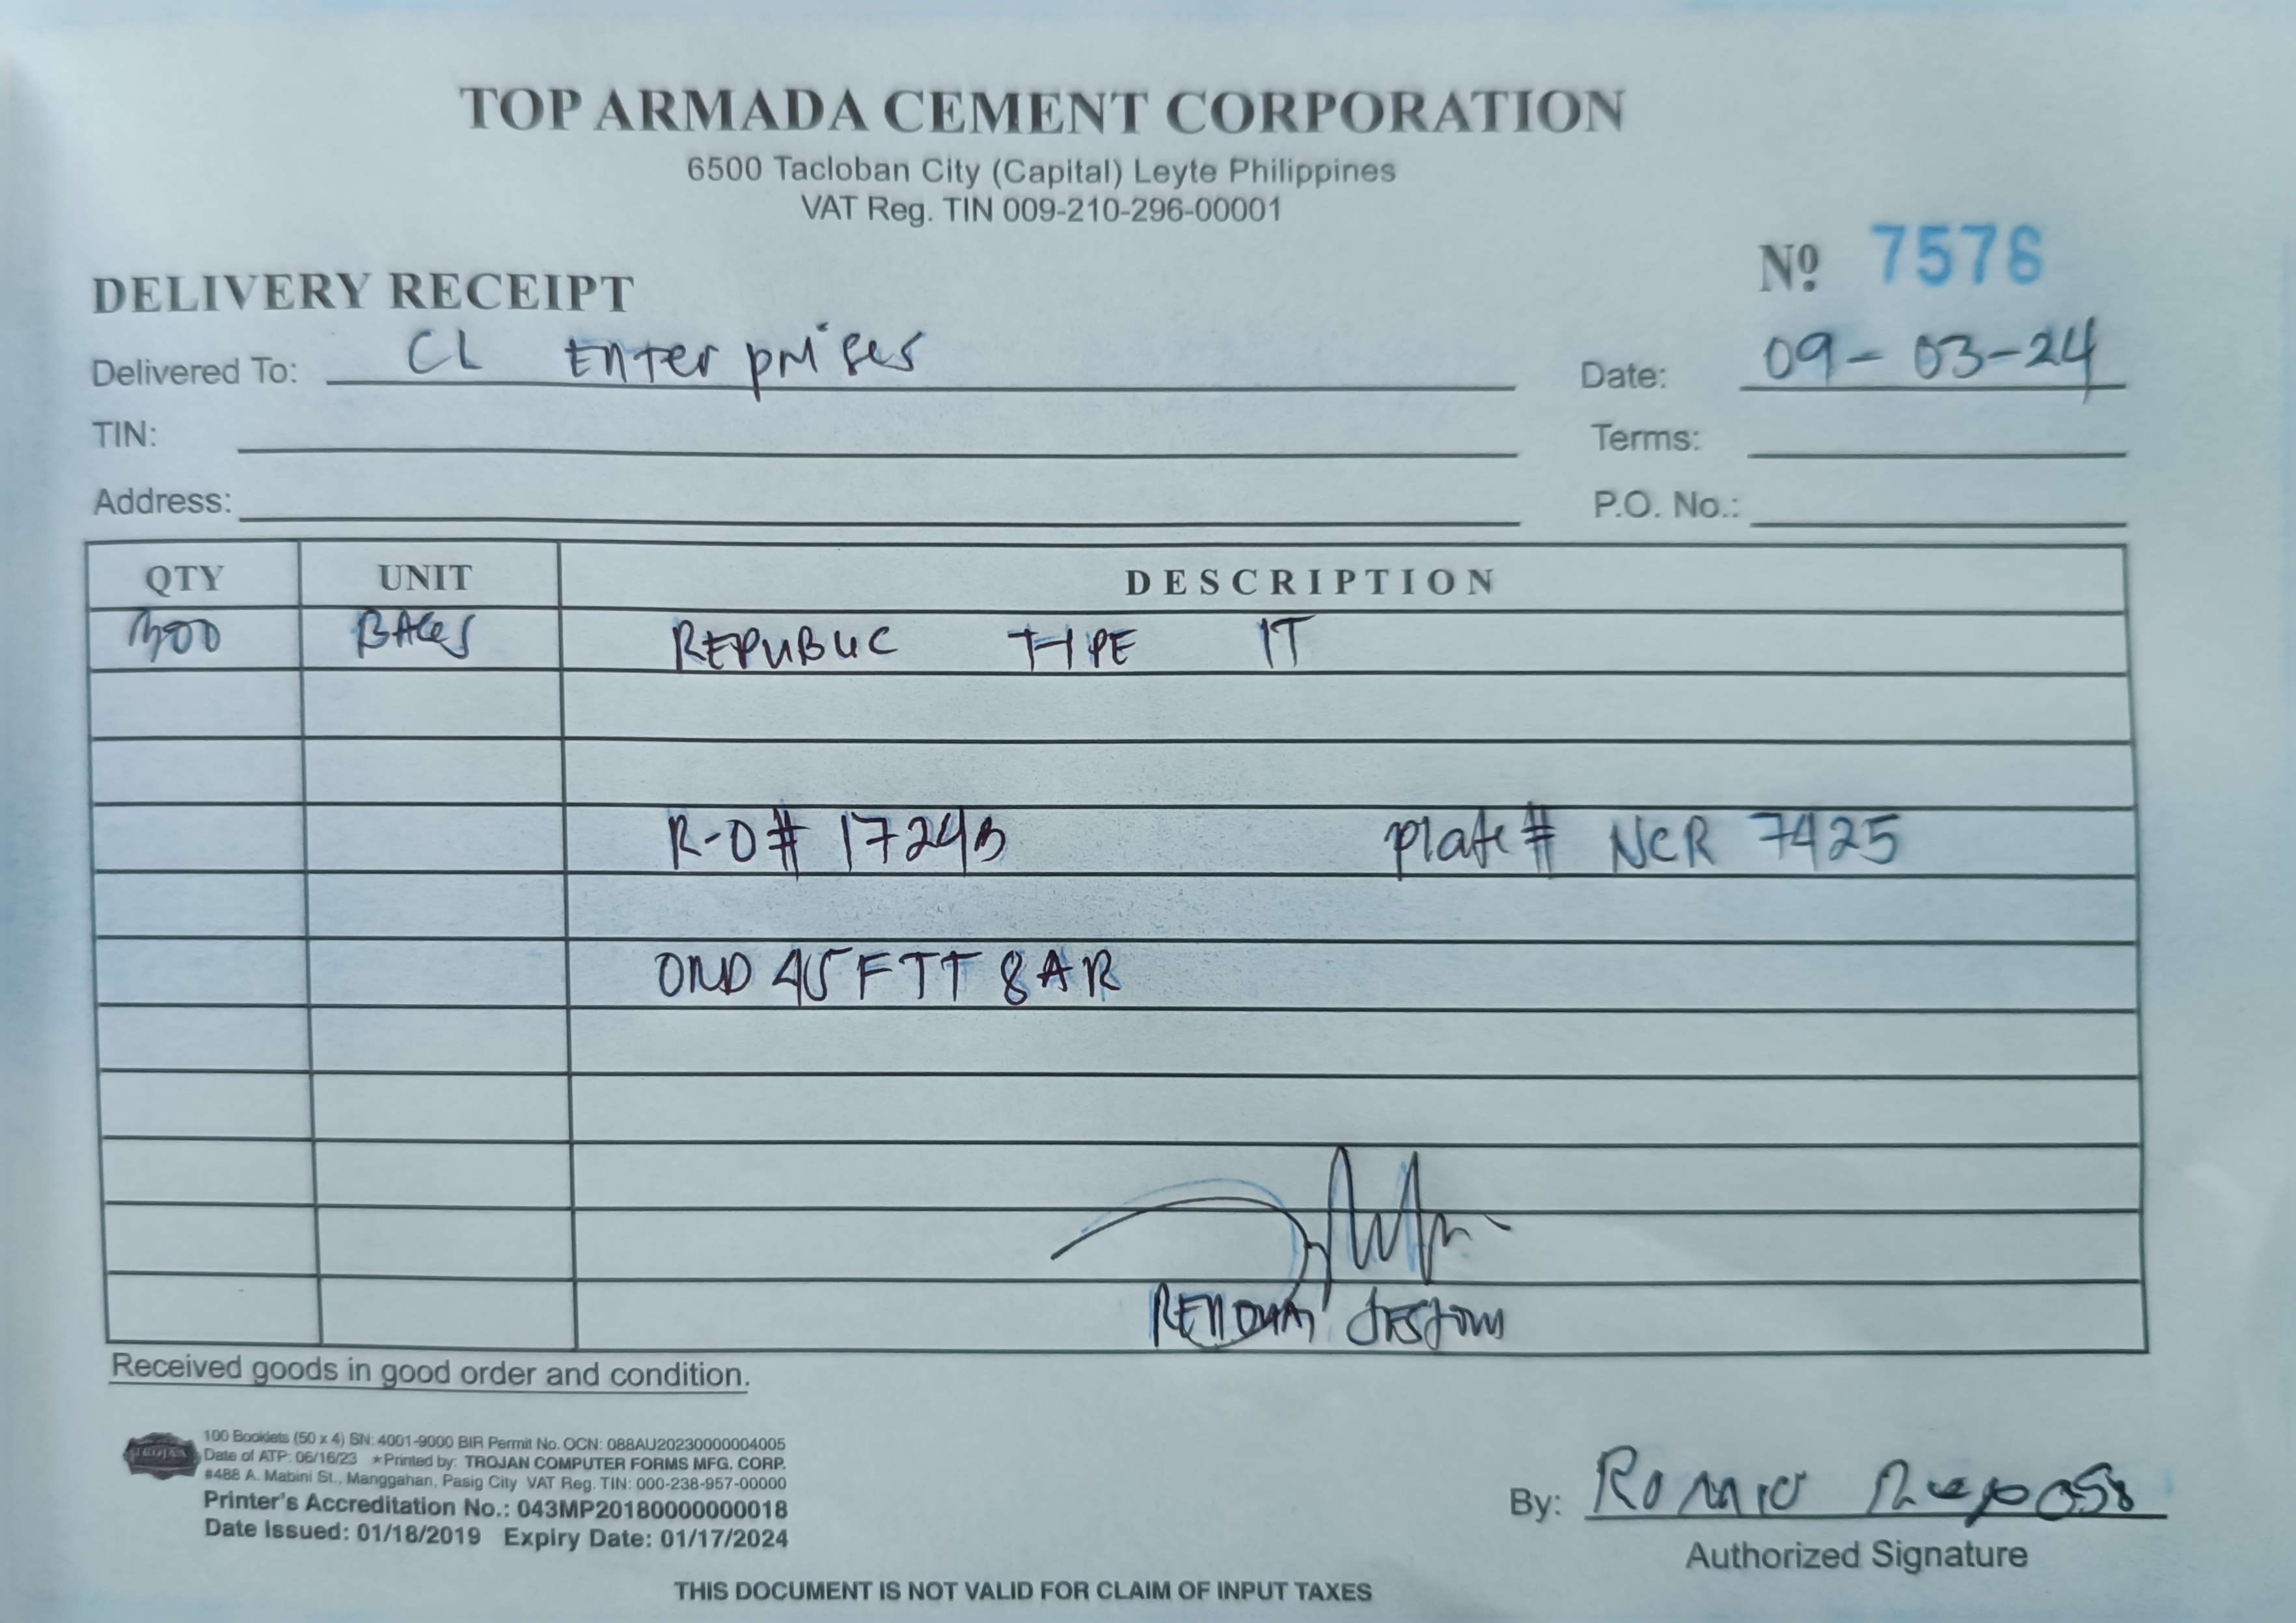 TOP ARMADA CEMENT CORPORATION
6500 Tacloban City (Capital) Leyte Philippines
VAT Reg. TIN 009-210-296-00001
Nº 7576
DELIVERY RECEIPT
Delivered To: CL Enterprises Date: 09-03-24
TIN: Terms:
Address: P.O. No.:
QTY UNIT DESCRIPTION
300 BAGS REPUBLIC TYPE 1T
R-O# 1724B plate# NCR 7425
45FTT8AR
Received goods in good order and condition.
TROJAN
100 Booklets (50 x 4) SN: 4001-9000 BIR Permit No. OCN: 088AU20230000004005
Date of ATP: 06/16/23 ★Printed by: TROJAN COMPUTER FORMS MFG. CORP.
#488 A. Mabini St., Manggahan, Pasig City VAT Reg. TIN: 000-238-957-00000
Printer's Accreditation No.: 043MP20180000000018
Date Issued: 01/18/2019 Expiry Date: 01/17/2024
By:
Authorized Signature
THIS DOCUMENT IS NOT VALID FOR CLAIM OF INPUT TAXES